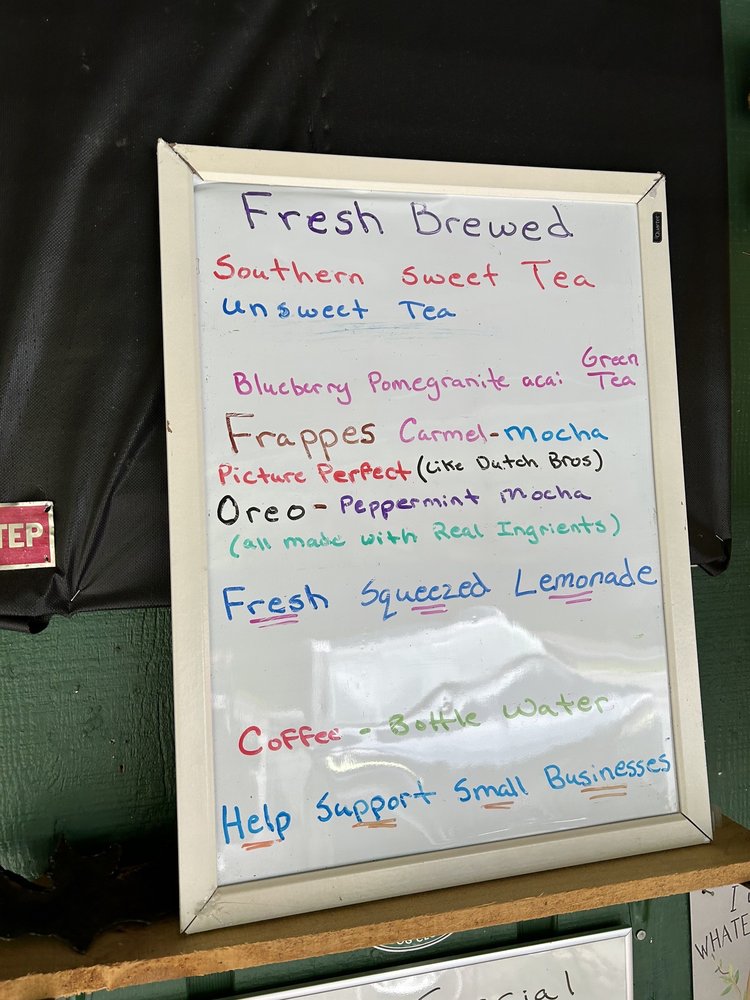 Fresh Brewed
Southern sweet Tea
unsweet Tea
Blueberry Pomegranite acai Green Tea
Frappes Carmel-Mocha
Picture Perfect (Like Dutch Bros)
Oreo - Peppermint Mocha
(all made with Real Ingrients)
Fresh Squeezed Lemonade
Coffee - Bottle Water
Help Support Small Businesses
TEP
I
WHATE